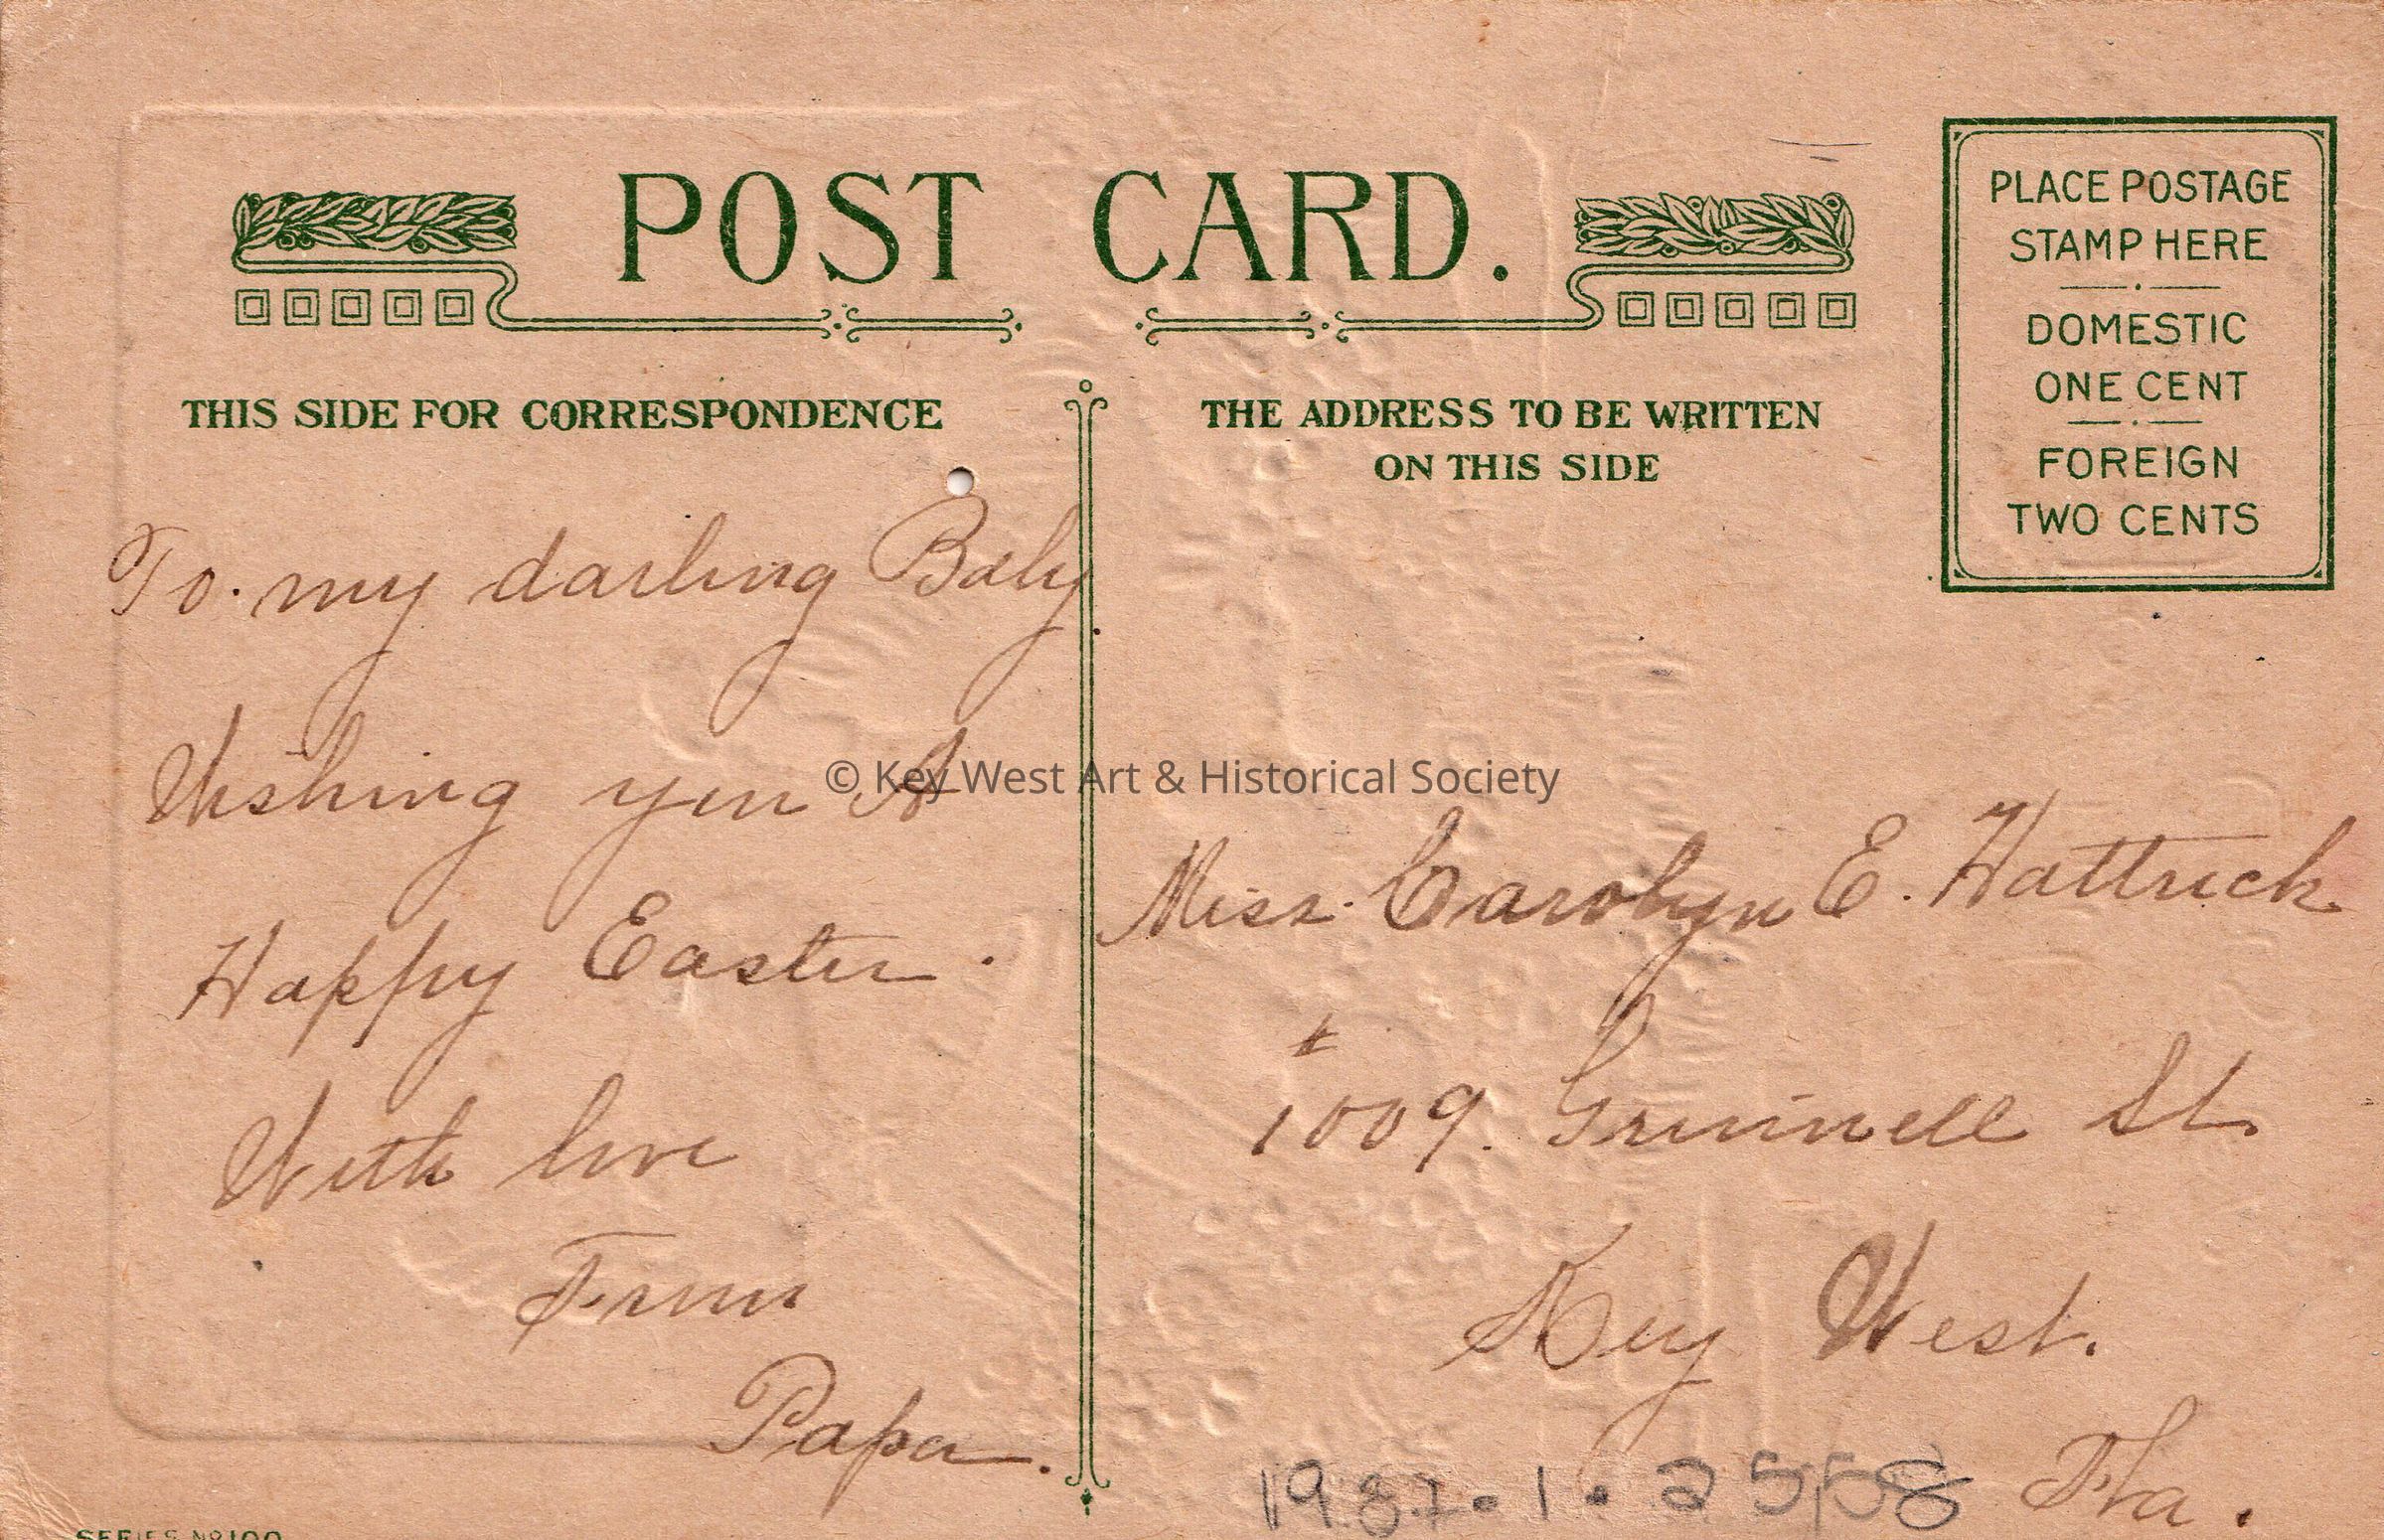 POST CARD.
THIS SIDE FOR CORRESPONDENCE
To. my darling Baby
Wishing you A
Happy Easter.
With love
From
Papa.
THE ADDRESS TO BE WRITTEN
ON THIS SIDE
PLACE POSTAGE
STAMP HERE
DOMESTIC
ONE CENT
FOREIGN
TWO CENTS
© Key West Art & Historical Society
Miss. Carolyn E. Hattrick
# 1009. Grinnell St.
Key West.
Fla.
1987.1.2558
SERIES No 100